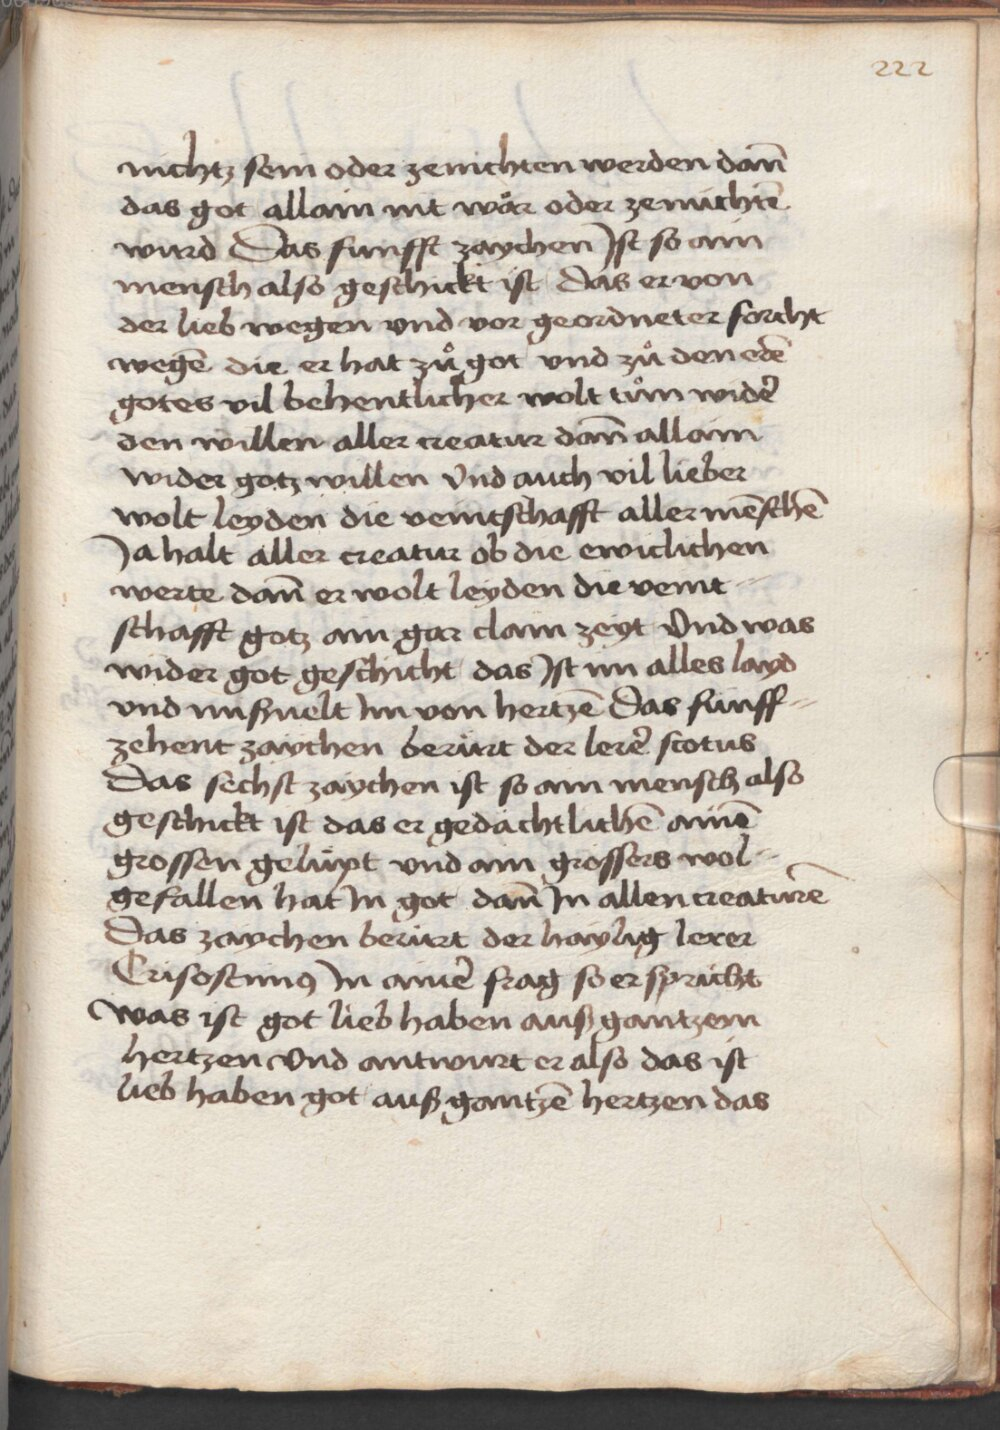 222
nichtz sein oder zenichten werden dan̄
das got allain nit wår oder zenichtē
wurd Das funfft zaychen Ist so ain
mensch also geschickt ist das er von
der lieb wegen vnd vor geordneter forcht
wegē die er hat zů got vnd zů den erē
gotes vil behentlicher wolt tůn widē
den willen aller creatur dan̄ allain
wider gotz willen Vnd auch vil lieber
wolt leyden die veintschafft aller mēschē
Ja halt aller creatur ob die ewiclichen
werte dan̄ er wolt leyden die veint-
schafft gotz ain gar clain zeyt Vnd was
wider got geschicht das Ist im alles layd
vnd mißuelt Im von hertzē Das funff-
zehent zaychen berürt der lerē scotus
Das sechst zaychen ist so ain mensch also
geschickt ist das er gedächtlichē ainē
grossen gelüpt vnd ain grossers wol-
gefallen hat In got dan̄ In allen creaturē
Das zaychen berürt der haylig lerer
Crisostimꝰ In ainē frag so er spricht
Was ist got lieb haben auß gantzem
hertzen Vnd antwurt er also das ist
lieb haben got auß gantzē hertzen das